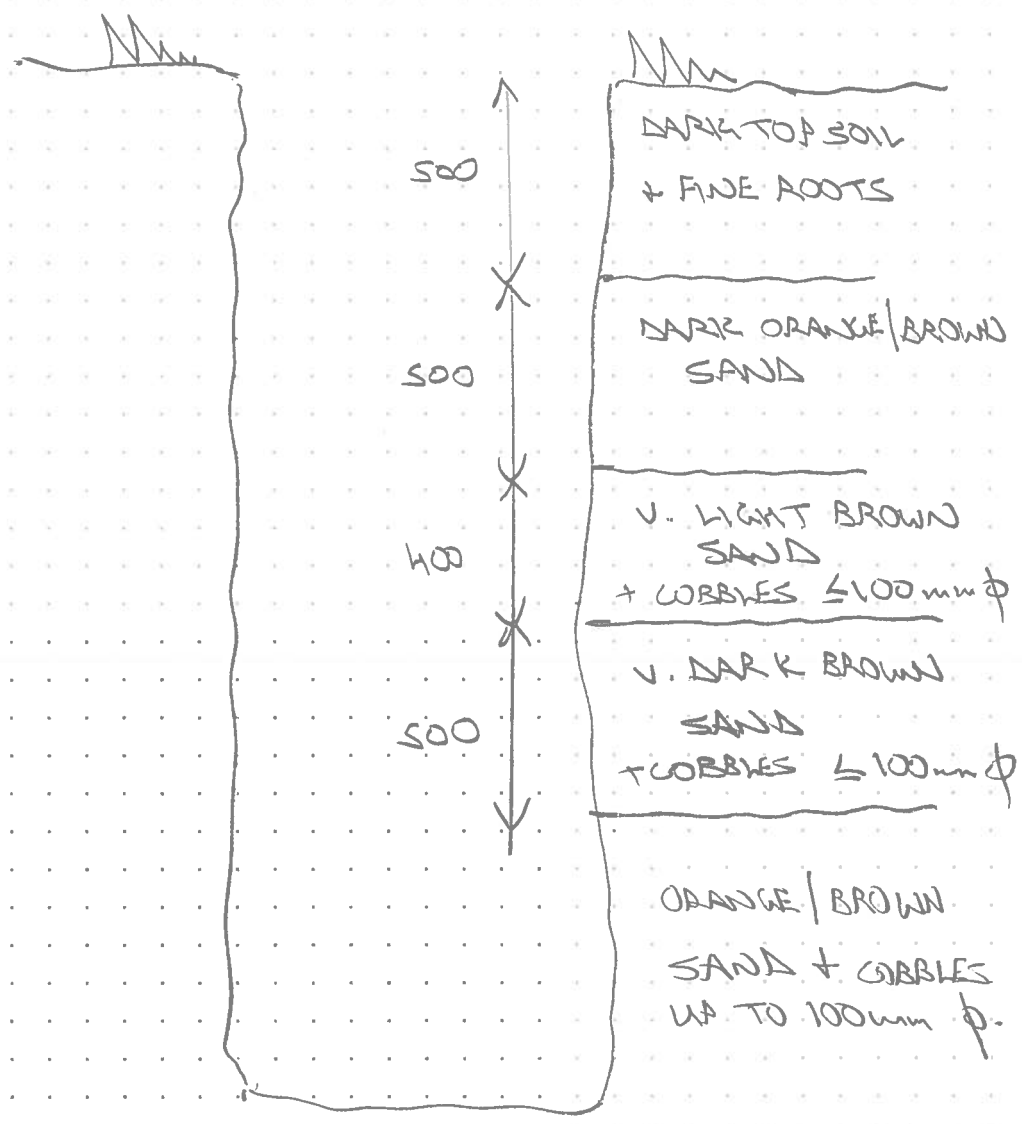 500
DARK TOP SOIL
+ FINE ROOTS
500
DARK ORANGE/BROWN
SAND
400
V. LIGHT BROWN
SAND
+ COBBLES ≤100mm ϕ
500
V. DARK BROWN
SAND
+ COBBLES ≤100mm ϕ
ORANGE/BROWN
SAND + COBBLES
UP TO 100mm ϕ.